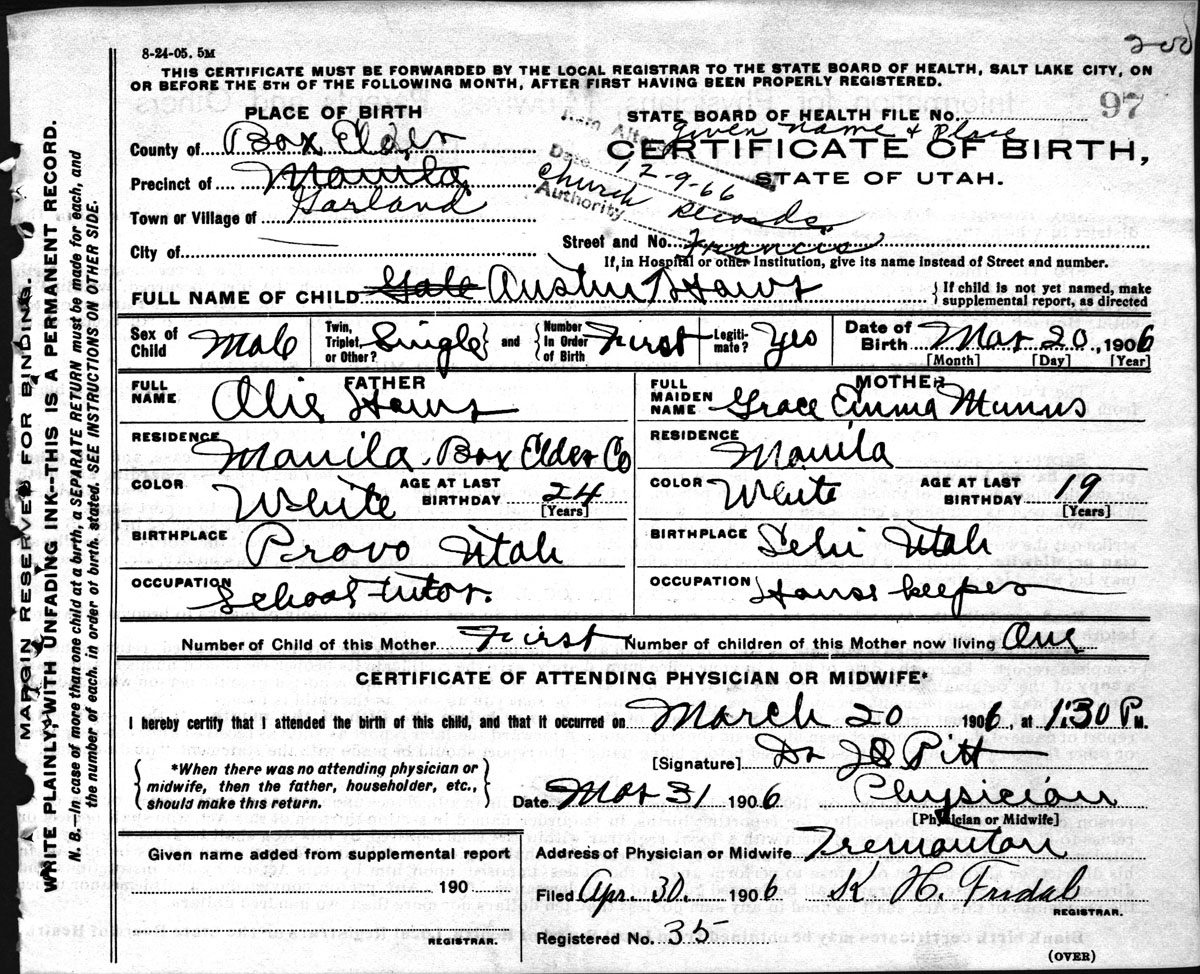 8-24-05. 5M
200
THIS CERTIFICATE MUST BE FORWARDED BY THE LOCAL REGISTRAR TO THE STATE BOARD OF HEALTH, SALT LAKE CITY, ON
OR BEFORE THE 5TH OF THE FOLLOWING MONTH, AFTER FIRST HAVING BEEN PROPERLY REGISTERED.
PLACE OF BIRTH
STATE BOARD OF HEALTH FILE No. 97
Item Alter given name & Place
County of Box Elder
CERTIFICATE OF BIRTH,
Date 12-9-66
STATE OF UTAH.
Precinct of Manila
Authority Church Records
Town or Village of Garland
City of
Street and No. Francis
If, in Hospital or other Institution, give its name instead of Street and number.
FULL NAME OF CHILD Gale Austin Haws
If child is not yet named, make
supplemental report, as directed
Sex of Child Male
Twin, Triplet, or Other? Single and Number In Order of Birth First
Legitimate? Yes
Date of Birth Mar 20, 1906
[Month] [Day] [Year]
FATHER
FULL NAME Alie Haws
RESIDENCE Manila Box Elder Co
COLOR White AGE AT LAST BIRTHDAY 24 [Years]
BIRTHPLACE Provo Utah
OCCUPATION School tutor
MOTHER
FULL MAIDEN NAME Grace Emma Munns
RESIDENCE Manila
COLOR White AGE AT LAST BIRTHDAY 19 [Years]
BIRTHPLACE Lehi Utah
OCCUPATION House keeper
Number of Child of this Mother First Number of children of this Mother now living One
CERTIFICATE OF ATTENDING PHYSICIAN OR MIDWIFE*
I hereby certify that I attended the birth of this child, and that it occurred on March 20 1906 at 1:30 P M.
*When there was no attending physician or
midwife, then the father, householder, etc.,
should make this return.
[Signature] Dr Pitt
Date Mar 31 1906 Physician
[Physician or Midwife]
Given name added from supplemental report
190
REGISTRAR.
Address of Physician or Midwife Tremonton
Filed Apr. 30. 1906 K. H. Fridal
REGISTRAR.
Registered No. 35
(OVER)
MARGIN RESERVED FOR BINDING.
WRITE PLAINLY, WITH UNFADING INK--THIS IS A PERMANENT RECORD.
N. B.--In case of more than one child at a birth, a SEPARATE RETURN must be made for each, and
the number of each, in order of birth, stated. SEE INSTRUCTIONS ON OTHER SIDE.